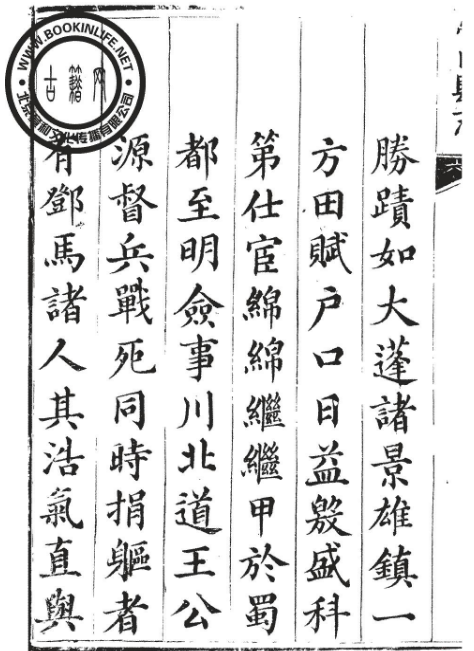 勝蹟如大蓬諸景雄鎮一
方田賦户口日益殷盛科
第仕宦綿綿繼繼甲於蜀
都至明僉事川北道王公
源督兵戰死同時捐軀者
有鄧馬諸人其浩氣直與
WWW.BOOKINLIFE.NET
古籍网